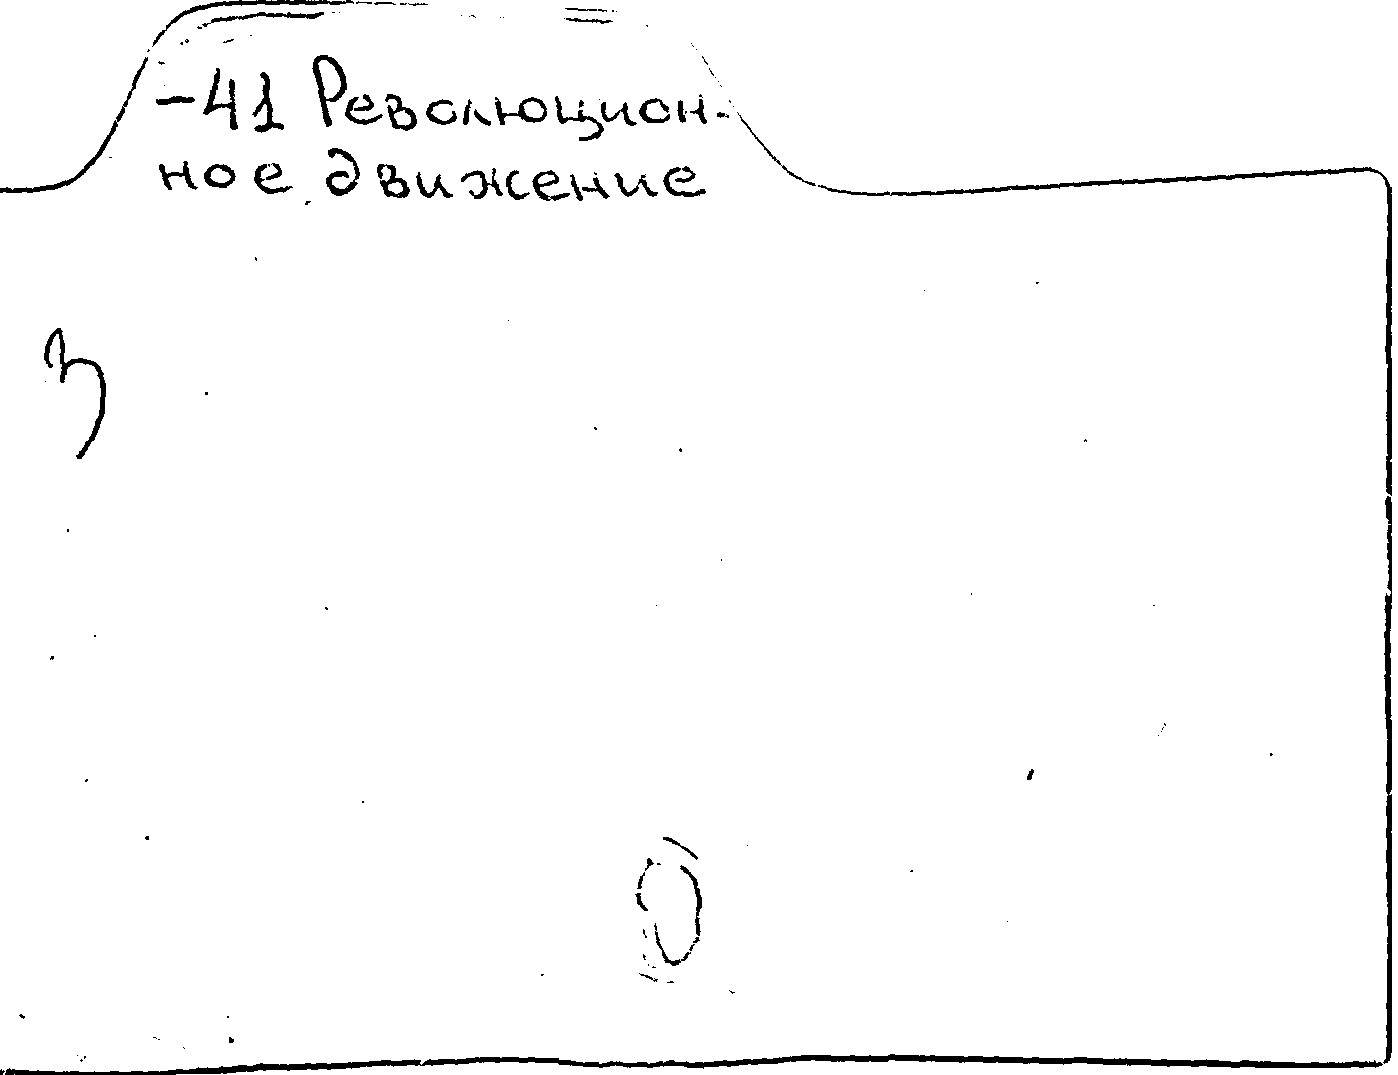 -41 Революцион-
ное движение